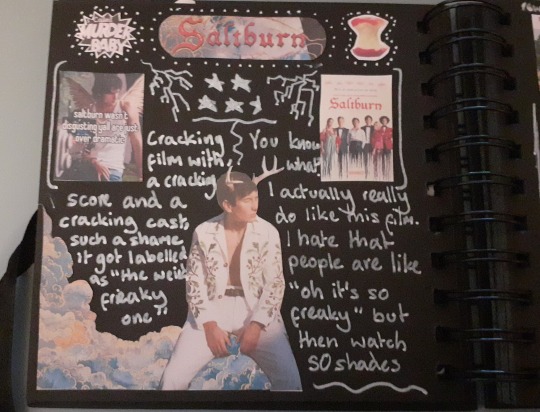 MURDER
BABY
Saltburn
saltburn wasn't
disgusting yall are just
over dramatic
Saltburn
Cracking
film with
a cracking
score and a
cracking cast,
such a shame
it got labelled
as "the weird
freaky
one"
You know
what
I actually really
do like this film.
I hate that
people are like
"oh it's so
freaky" but
then watch
50 shades